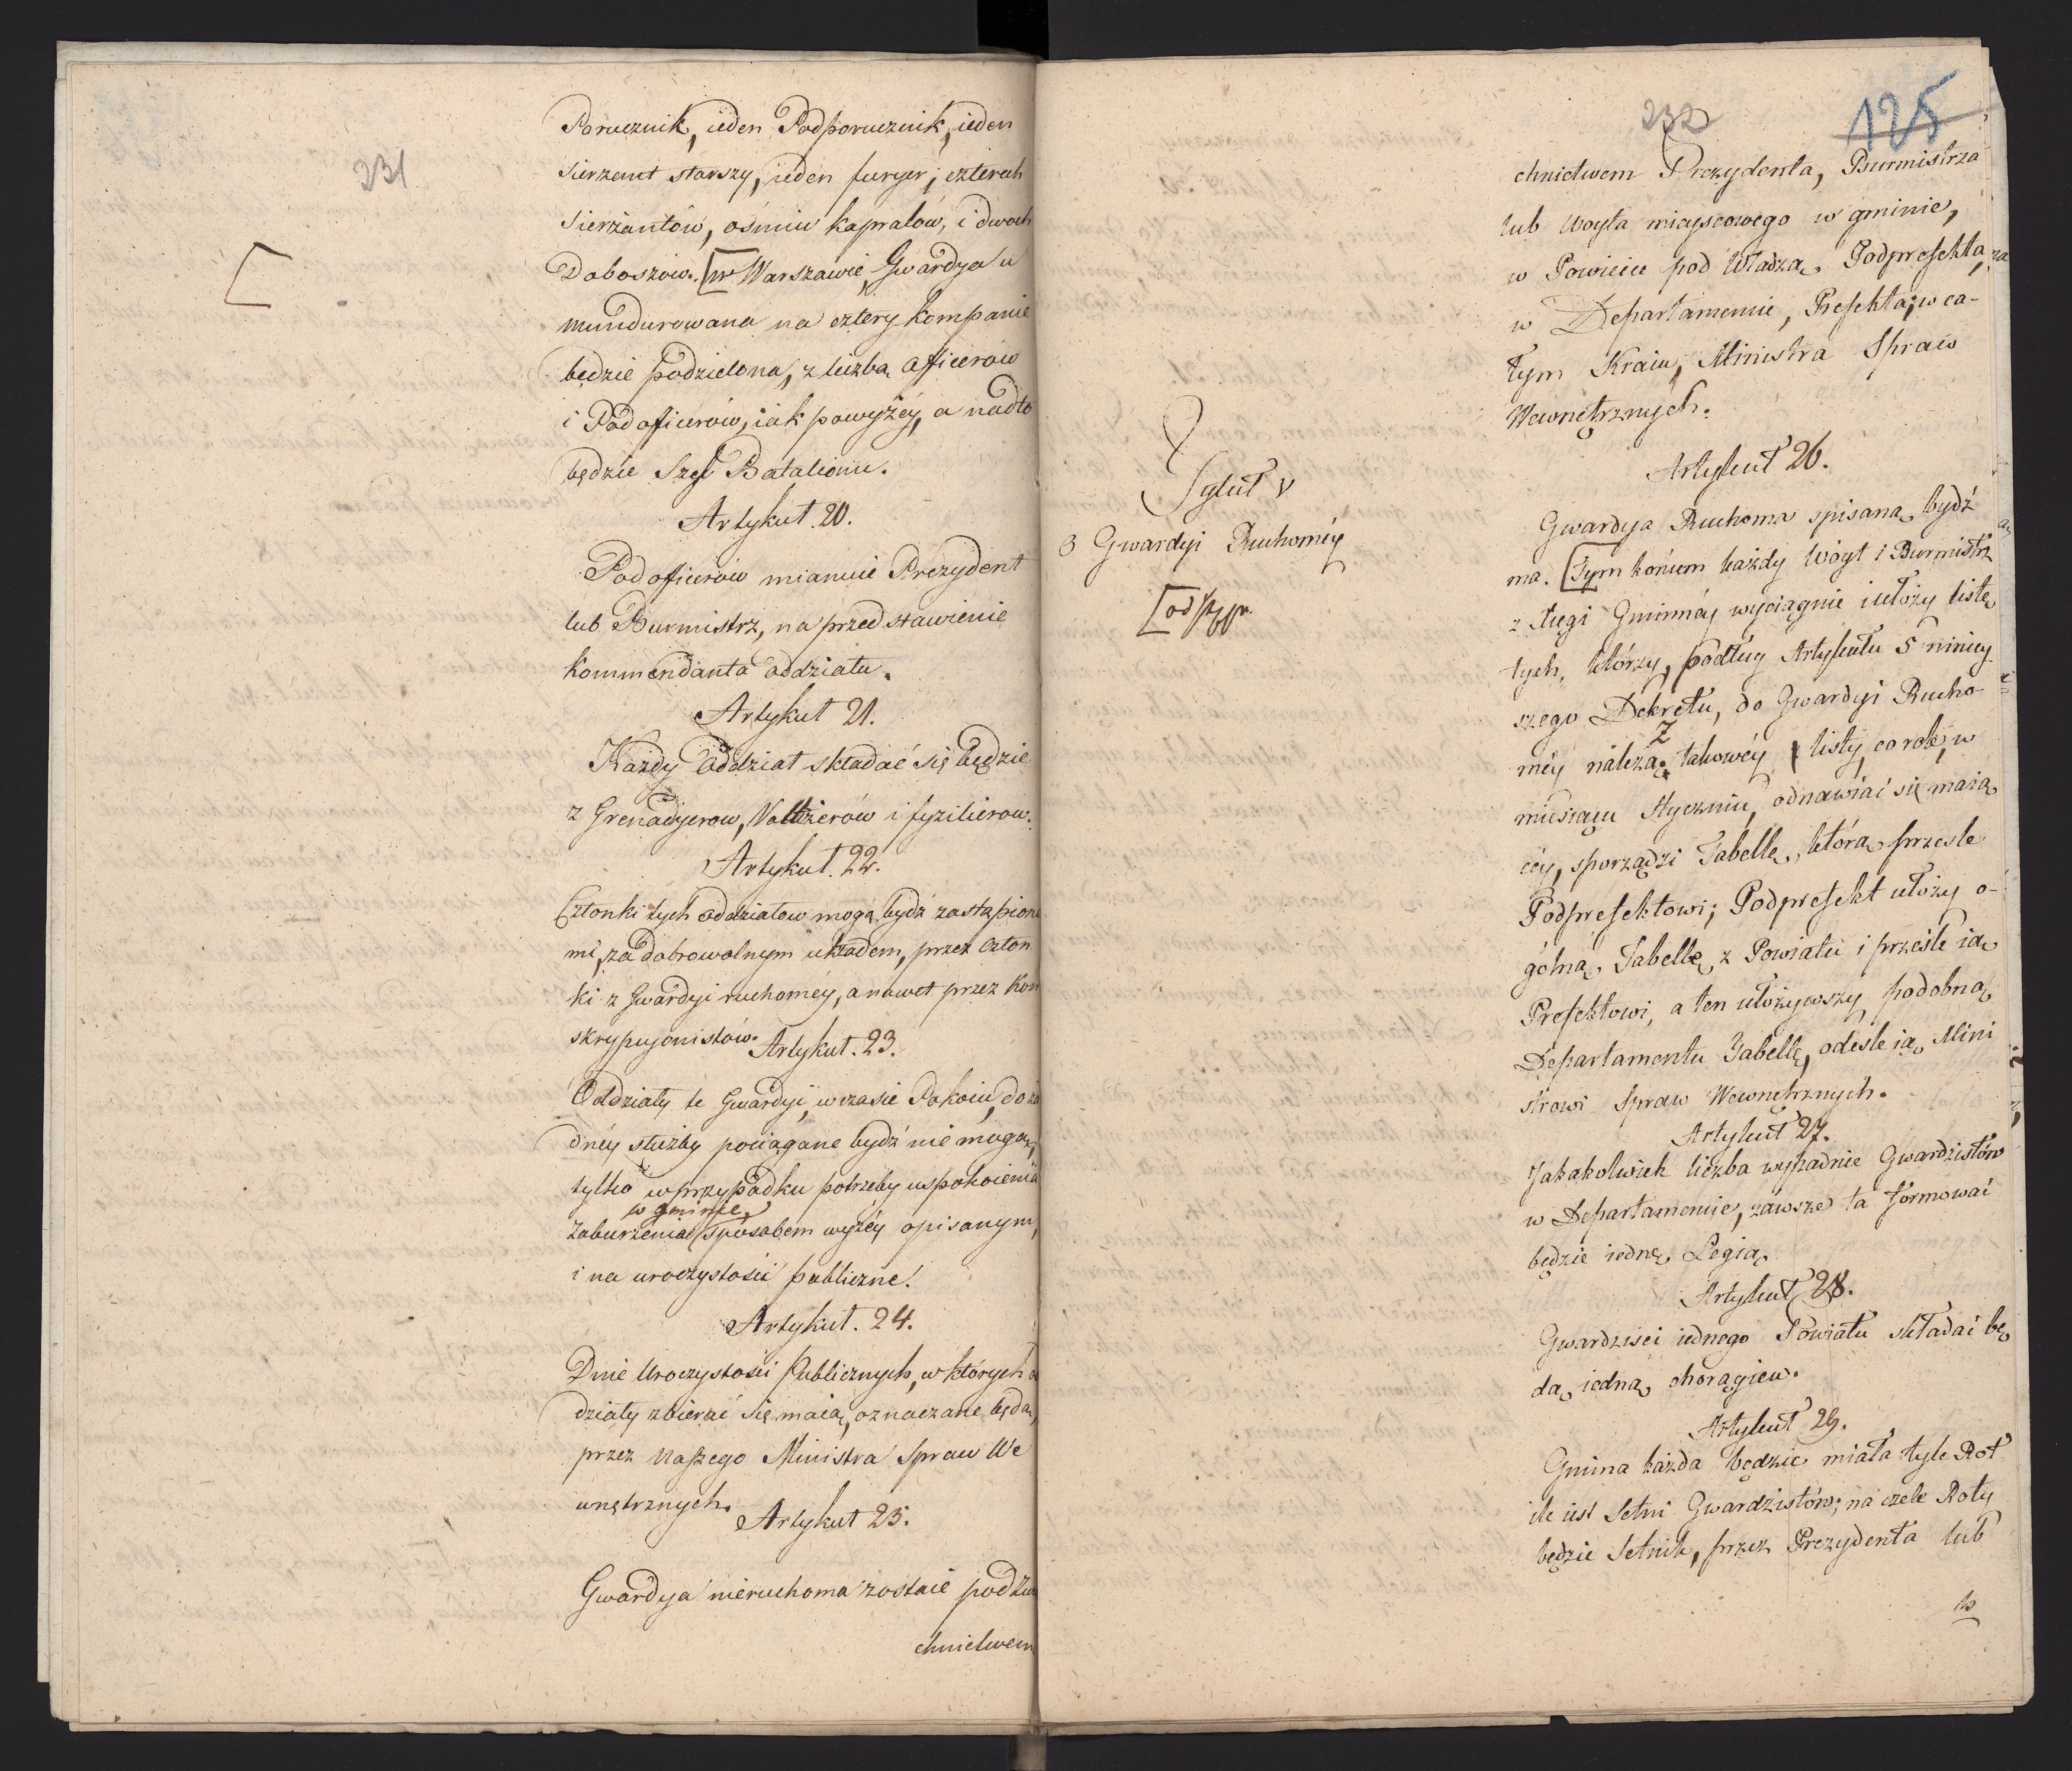 231
Porucznik, ieden Podporucznik, ieden
Sierzant starszy, ieden furyer, czterech
Sierżantów, ośmiu kapralów, i dwoch
Doboszów. [w Warszawie, Gwardya u
mundurowana na cztery kompanie
będzie podzielona, z liczbą officerów
i Podofficerów, iak powyżéy, a nadto
będzie Szef Batalionu.
Artykuł. 20.
Podoficerów mianuie Prezydent
lub Burmistrz, na przedstawienie
kommendanta oddziału.
Artykuł 21.
Każdy Oddział składać się będzie
z Grenadyerow, Voltizerów i fyzilierow.
Artykuł. 22.
Członki tych oddziałow mogą bydź zastąpione
mi, za dobrowolnym układem, przez człon
ki z Gwardyi ruchoméy, a nawet przez kon
skrypcyonistów.
Artykuł. 23.
Oddziały te Gwardyi, w czasie Pokoiu, do ża
dnéy służby pociągane bydź nie mogą,
tylko w przypadku potrzeby uspokoienia
w gminie
zaburzenia sposobem wyżéy opisanym,
i na uroczystości publiczne.
Artykuł. 24.
Dnie Uroczystości Publicznych, w których od
działy zbierać się maią, oznaczane będą,
przez Naszego Ministra Spraw We
wnętrznych.
Artykuł 25.
Gwardya nieruchoma zostaie pod zwie
chnictwem
232
125
chnictwem Prezydenta, Burmistrza
lub Woyta mieyscowego w gminie,
w Powiecie pod Władzą Podprefekta, za
w Departamencie, Prefekta; w ca-
łym Kraiu, Ministra Spraw
Wewnętrznych.
Tytuł V
O Gwardyi Ruchoméy
Artykuł 26.
Gwardya Ruchoma spisaną bydź
ma. [Tym końcem każdy Wóyt i Burmistrz
z Xięgi Gminnéy wyciągnie i ułoży listę
tych, którzy, podług Artykułu 5 niniey
szego Dekretu, do Gwardyi Rucho-
méy należą; z takowéy listy, co rok, w
miesiącu Styczniu, odnawiać się maią
céy, sporządzi Tabellę, którą przesle
Podprefektowi; Podprefekt ułoży o-
gólną Tabellę z Powiatu i prześle ią
Prefektowi, a ten ułożywszy podobną
Departamentu Tabellę, odesle ią Mini
strowi Spraw Wewnętrznych.
Artykuł 27.
Jakakolwiek liczba wypadnie Gwardzistów
w Departamencie, zawsze ta formować
będzie iednę Legią.
Artykuł 28.
Gwardzisci iednego Powiatu składać bę
dą iedną chorągiew.
Artykuł 29.
Gmina każda będzie miała tyle Rot
ile iest Setni Gwardzistów; na czele Roty
będzie Setnik, przez Prezydenta lub